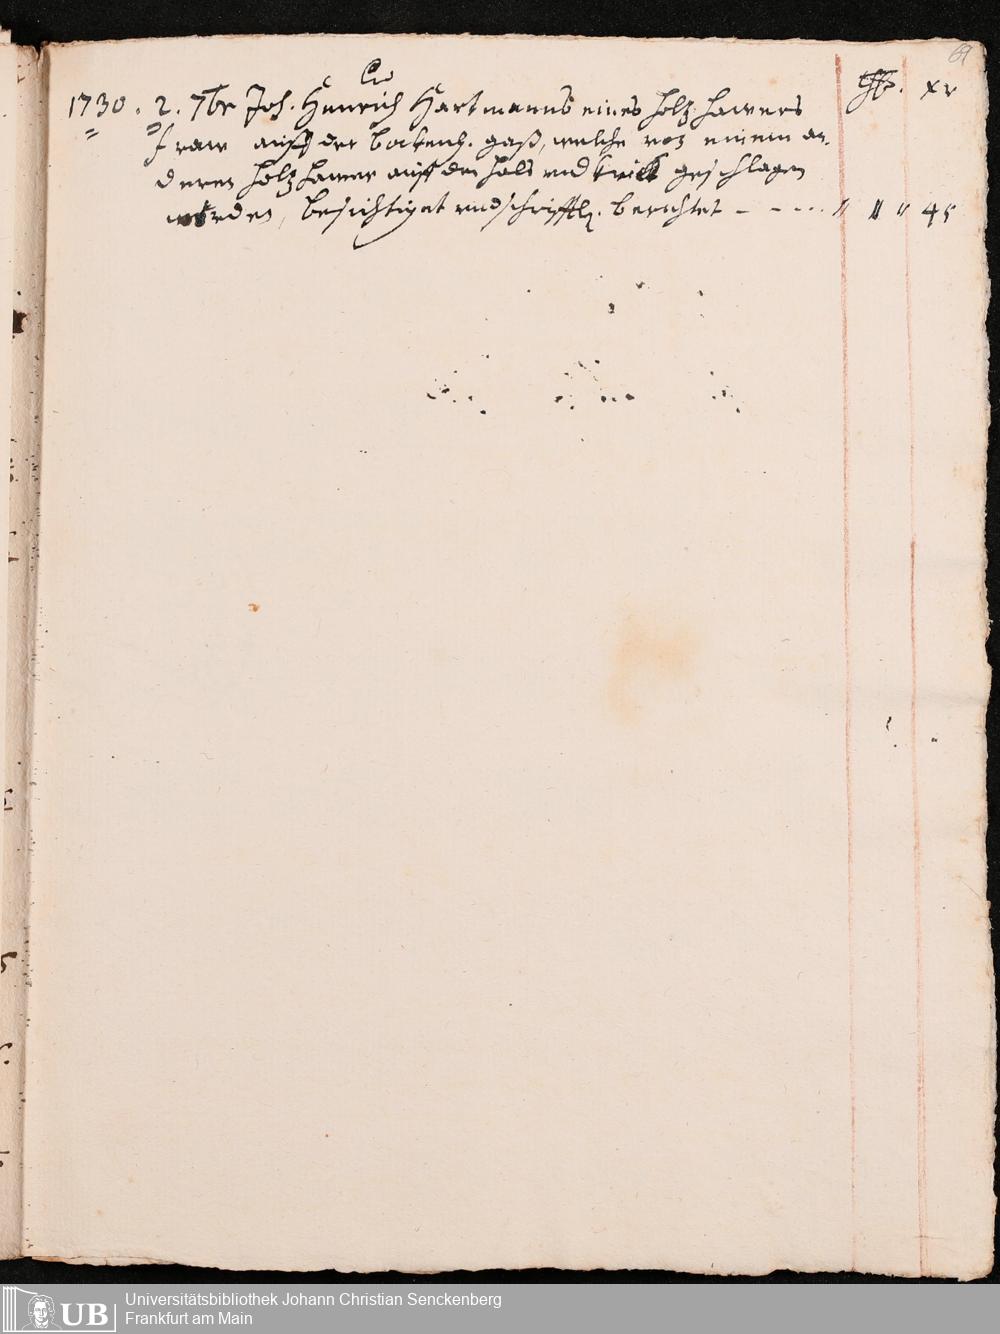 69
1730. 2. 7br Joh. Henrich Hartmanns eines holtz hawers xr
fraw auff der bockenh. gaß, welche von einem an,
deren holtz hawer auff den hals und geschlagen
worden, besichtiget und schrifftl. berichtet - - - - . . " " " 45
Universitätsbibliothek Johann Christian Senckenberg
UB Frankfurt am Main